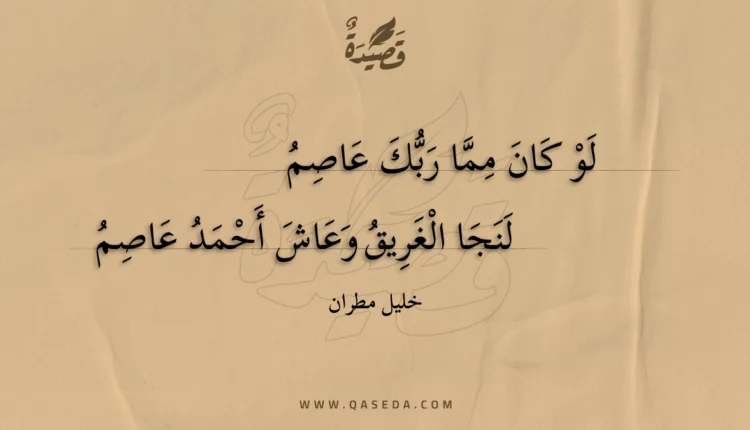 قَصِيدَةٌ
لَوْ كَانَ مِمَّا رَبُّكَ عَاصِمُ
لَنَجَا الْغَرِيقُ وَعَاشَ أَحْمَدُ عَاصِمُ
خليل مطران
WWW.QASEDA.COM